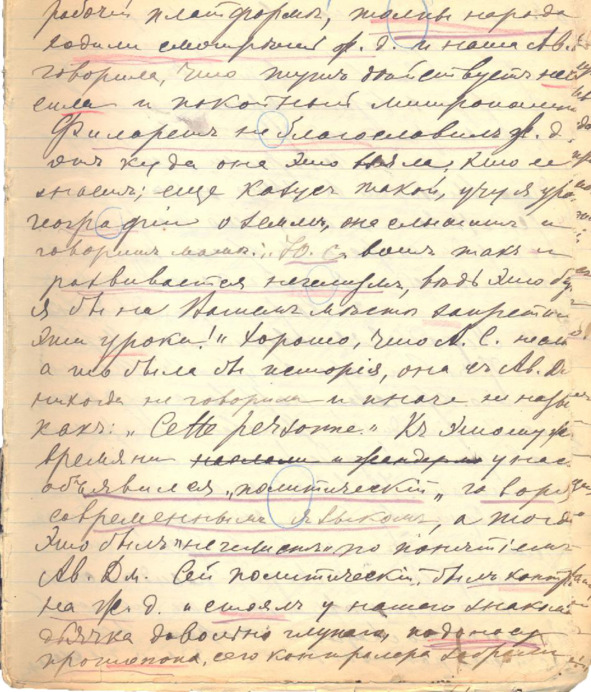 рабочей платформы, толпы народа
ходили смотреть ж. д. и наша Ав.
говорила, что тутъ действуетъ не
сила и покойный митрополит
Филаретъ не благословилъ ж. д.
откуда она это взяла, кто ее
знаетъ; еще казусъ такой, учу я уро
географіи о земле, она слышитъ и
говоритъ маме: „Ю. С. вотъ такъ и
развивается нечистый, ведь это бу
я бы на Вашемъ месте запретил
эти уроки!" Хорошо, что А. С.
а то была бы исторія, она съ Ав. Дм
никогда не говорила и иначе не назы
какъ: „Cette personne." Къ этому же
времяни у насъ
объявился „политическій" говоря
современнымъ языкомъ, а тогда
это былъ „нечистый" по понятіямъ
Ав. Дм. Сей политическій былъ контр
на ж. д. и стоялъ у нашего знаком
дьячка довольно глупаго,
протопопа, сего контралера забрали